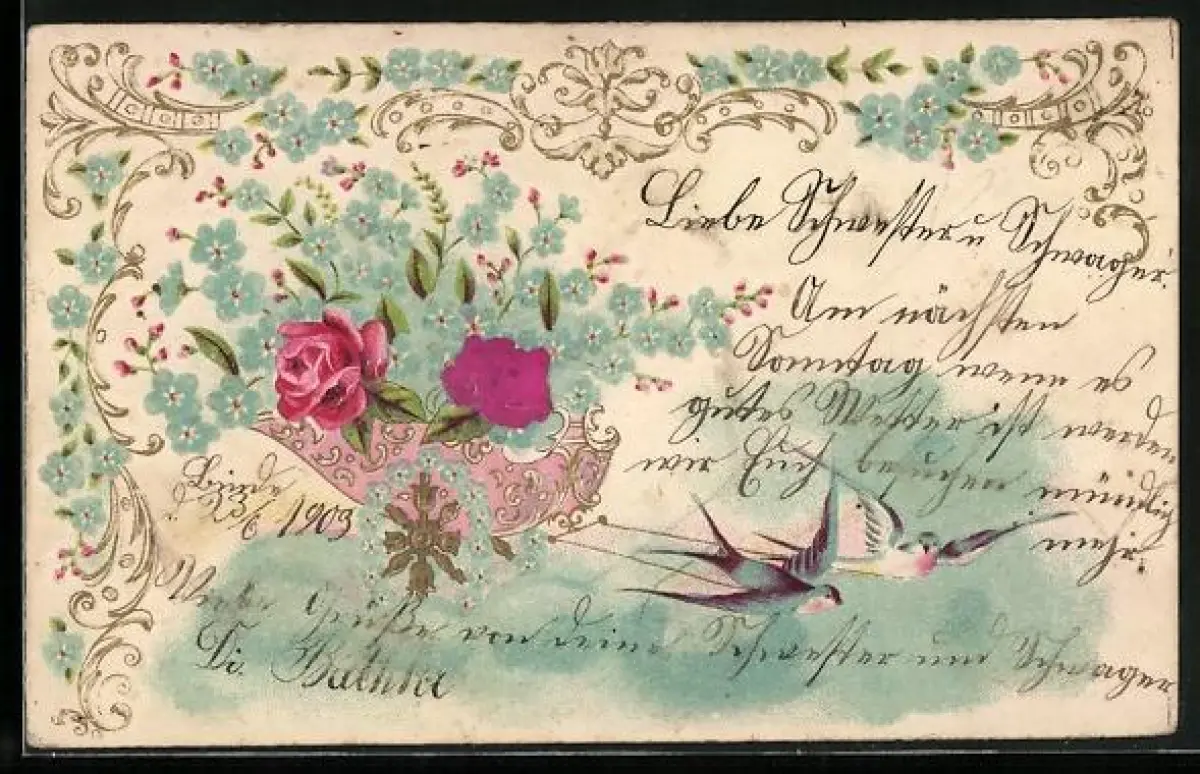 Liebe Schwester u Schwager.
Am nächsten
Sonntag wenn es
gutes Wetter ist werden
wir Euch besuchen mündlich
mehr.
Linde
d. 23/6 1903
Grüße von deine Schwester und Schwager